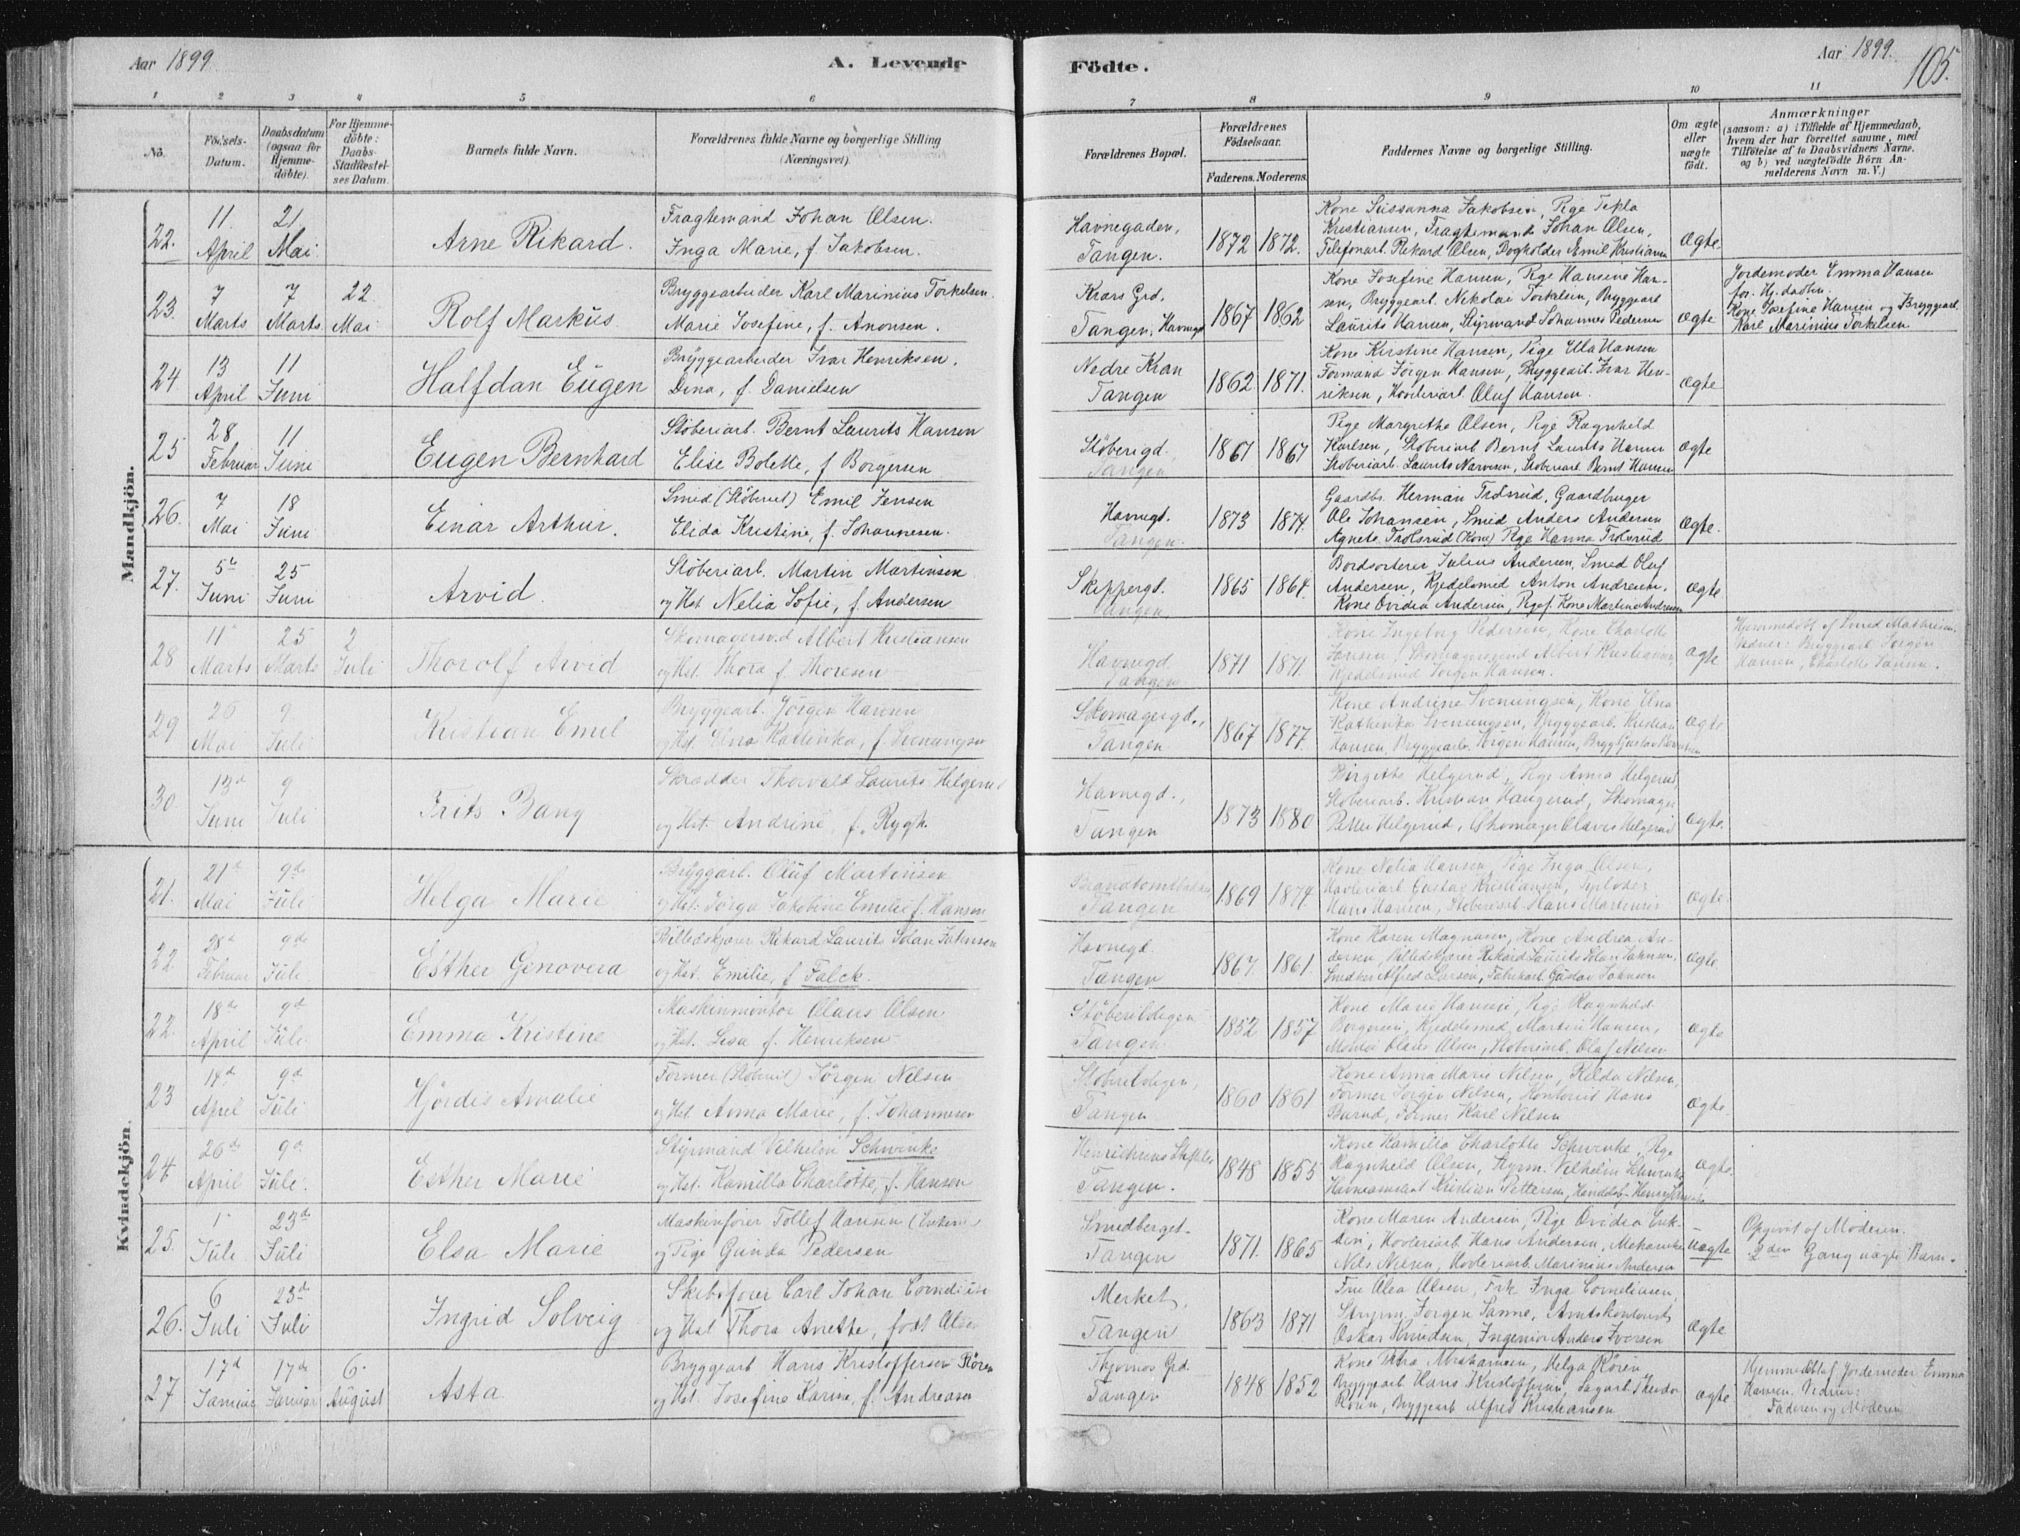 Aar 1899.
A. Levende
Födte.
Aar 1899.
105.
1 2 3 4 5 6 7 8 9 10 11
No.
Födsels-Datum.
Daabsdatum (ogsaa for Hjemmedöbte).
For Hjemmedöbte: Daabs Stadfæstelses Datum.
Barnets fulde Navn.
Forældrenes fulde Navne og borgerlige Stilling (Næringsvei).
Forældrenes Bopæl.
Forældrenes Födselsaar.
Faderens. Moderens.
Faddernes Navne og borgerlige Stilling.
Om ægte eller uægte födt.
Anmærkninger
(saasom: a) i Tilfælde af Hjemmedaab,
hvem der har forrettet samme, med
Tilföielse af to Daabsvidners Navne,
og b) ved uægtefödte Börn An-
melderens Navn m. V.)
Mandkjön.
22. 11 April 21 Mai. Arne Rikard.
Fragtemand Johan Olsen.
Inga Marie, f. Jakobsen.
Havnegaden,
Tangen.
1872 1872.
Kone Sussanna Jakobsen, Pige Tekla
Kristiansen, Fragtemand Johan Olsen,
Telefonarb. Rikard Olsen, Bogholder Emil Kristiansen
Ægte.
23. 7 Marts 7 Marts 22. Mai Rolf Markus.
Bryggearbeider Karl Marinius Torkelsen.
Marie Josefine, f. Anonsen.
Krars Grd.
Tangen, Havnegd
1867 1862
Kone Josefine Hansen, Pige Hansene Han-
sen, Bryggearb. Nikolai Torkelsen, Bryggearb
Laurits Hansen, Styrmand Johannes Pedersen
ægte
Jordemoder Emma Hansen
for. Hj.daaben.
Kone Josefine Hansen og Bryggearb.
Karl Marinius Torkelsen
24 13 April 11 Juni Halfdan Eugen
Bryggearbeider Ivar Henriksen.
Dina, f. Danielsen
Nedre Kran
Tangen
1862 1871.
Kone Kirstine Hansen, Pige Ulla Hansen
Formand Jörgen Hansen, Bryggearb. Ivar Hen-
riksen, Hövleriarb Oluf Hansen.
Ægte
25 28 Februar 11 Juni Eugen Bernhard
Stöberiarb. Bernt Laurits Hansen
Elise Bolette, f. Borgersen
Stöberigd,
Tangen
1867 1867
Pige Margrethe Olsen, Pige Ragnhild
Karlsen, Stoberiarb Bernt Laurits Hansen
Stoberiarb. Laurits Narvesen, Stoberiarb Bernt Hansen
ægte
26. 7 Mai 18 Juni Einar Arthur.
Smed (Stöberiet) Emil Jensen
Elida Kristine, f. Johannesen.
Havnegd.
Tangen.
1873 1874.
Gaardbr. Herman Trolsrud, Gaardbruger
Ole Johansen, Smed Anders Andersen
Agnete Trolsrud (Kone) Pige Hanna Trolsrud
Ægte.
27. 5te Juni 25 Juni Arvid.
Stöberiarb. Martin Martinsen
og Hst. Nelia Sofie, f. Andersen
Skippergd.
Tangen.
1865 1864.
Bordsorterer Julius Andersen, Smed Oluf
Andersen, Kjedelsmed Anton Andresen,
Kone Ovidia Andersen, Kone Martine Andresen
ægte
28 11 Marts 25 Marts 2 Juli Thorolf Arvid
Skomagersvd Albert Kristiansen
og Hst. Thora f. Thoresen
Havnegd.
Tangen
1871 1871.
Kone Ingeborg Pedersen, Kone Charlotte
Jansen, Skomagersvend Albert Kristiansen,
Kjedelsmed Jörgen Hansen.
ægte
Hjemmedöbt af Smed Mathisen.
Vidner: Bryggearb. Jörgen
Hansen, Charlotte Jansen.
29 26 Mai 9 Juli Kristian Emil
Bryggearb. Jörgen Hansen
og Hst. Una Kathinka, f. Svenungsen
Skomagergd.,
Tangen
1867 1877.
Kone Andrine Svenungsen, Kone Una
Kathinka Svenungsen, Bryggearb. Kristian
Hansen, Bryggearb. Jörgen Hansen, Brygg Gustav
ægte
30 13d Juni 9 Juli Frits Bang
Skrædder Thorvald Laurits Helgerud
og Hst. Andrine, f. Rygh.
Havnegd.,
Tangen
1873 1880
Birgitte Helgerud, Pige Anna Helgerud,
Stoberiarb. Kristian Haugerud, Skomager
Petter Helgerud, Skomager Olaves Helgerud
ægte.
Kvindekjön.
21. 21d Mai 9de Juli Helga Marie
Bryggarb. Oluf Martinsen
og Hst. Jörga Jakobine Emilie f. Hansen
Tangen
1869 1874.
Kone Nelia Hansen, Pige Inga Olsen,
Hövleriarb. Gustav Kristiansen,
Hans Hansen, Stöberiarb. Hans Martinsen
ægte.
22 28d Februar 9de Juli Esther Genovera
Billedskjærer Rikard Laurits Johan Johnsen
og Hst. Emilie, f Falck.
Havnegd.
Tangen
1867. 1861.
Kone Karen Magnusen, Kone Andrea An-
dersen, Billedskjærer Rikard Laurits Johan Johnsen,
Smed Alfred Larsen, Fabrikarb. Gustav Johnsen
ægte
22. 18de April 9d Juli Emma Kristine
Maskinmontör Olaus Olsen
og Hst. Lisa f. Henriksen
Tangen.
1852 1857
Kone Marie Hansen, Pige Ragnhild
Borgersen, Kjedelsmed, Martin Hansen,
Montör Olaus Olsen, Stoberiarb. Olaf Nelsen
ægte
23 14d April 9d Juli Hjördis Amalie
Former (Stöberiet) Jörgen Nelsen
og Hst. Anna Marie, f. Johannesen
Tangen
1860 1861
Kone Anna Marie Nilsen, Hilda Nilsen,
Former Jörgen Nilsen, Kontorist Hans
Former Karl Nilsen
ægte
24 26de April 9d Juli. Esther Marie
Styrmand Vilhelm Schwenke
og Hst. Kamilla Charlotte, f. Hansen
Tangen.
1848 1855
Kone Kamilla Charlotte Schwenke, Pige
Ragnhild Olsen, Styrm. Vilhelm Schwenke
Kristian Pettersen,
ægte
25. 1 Juli 23de Juli Elsa Marie
Maskinförer Tollef Hansen (Enkem.)
og Pige Gunda Pedersen
Smedberget.
Tangen
1871. 1865
Kone Maren Andersen, Pige Ovidia Erik-
sen, Hövleriarb Hans Andersen, Mekaniker
Nils Nilsen, Hövleriarb. Marinius Andersen
uægte
Opgivet af Moderen.
2den Gang uægte Barn.
26. 6 Juli 23d Juli Ingrid Solveig
Skibsförer Carl Johan Cornelius
og Hst Thora Anette, födt Olsen
Merket,
Tangen
1863 1871
Fru Alea Olsen, Frk Inga Corneliusen,
Styrm. Jörgen Sanne, Amtskontorist
Oskar Knudsen, Ingeniör Anders Iversen
ægte
27 17d Januar 17de Januar 6. August Asta
Bryggearb Hans Kristoffersen Rören
og Hst. Josefine Karine, f. Andreasen
Tangen
1848 1852
Kone Petra Abrahamsen, Helga Rören
Bryggearb Hans Kristoffersen, Sagarb. Theodor
Rören, Bryggearb Alfred Kristiansen
ægte
Hjemmedöbt af Jordemoder Emma
Hansen. Vidner:
Faderen og Moderen